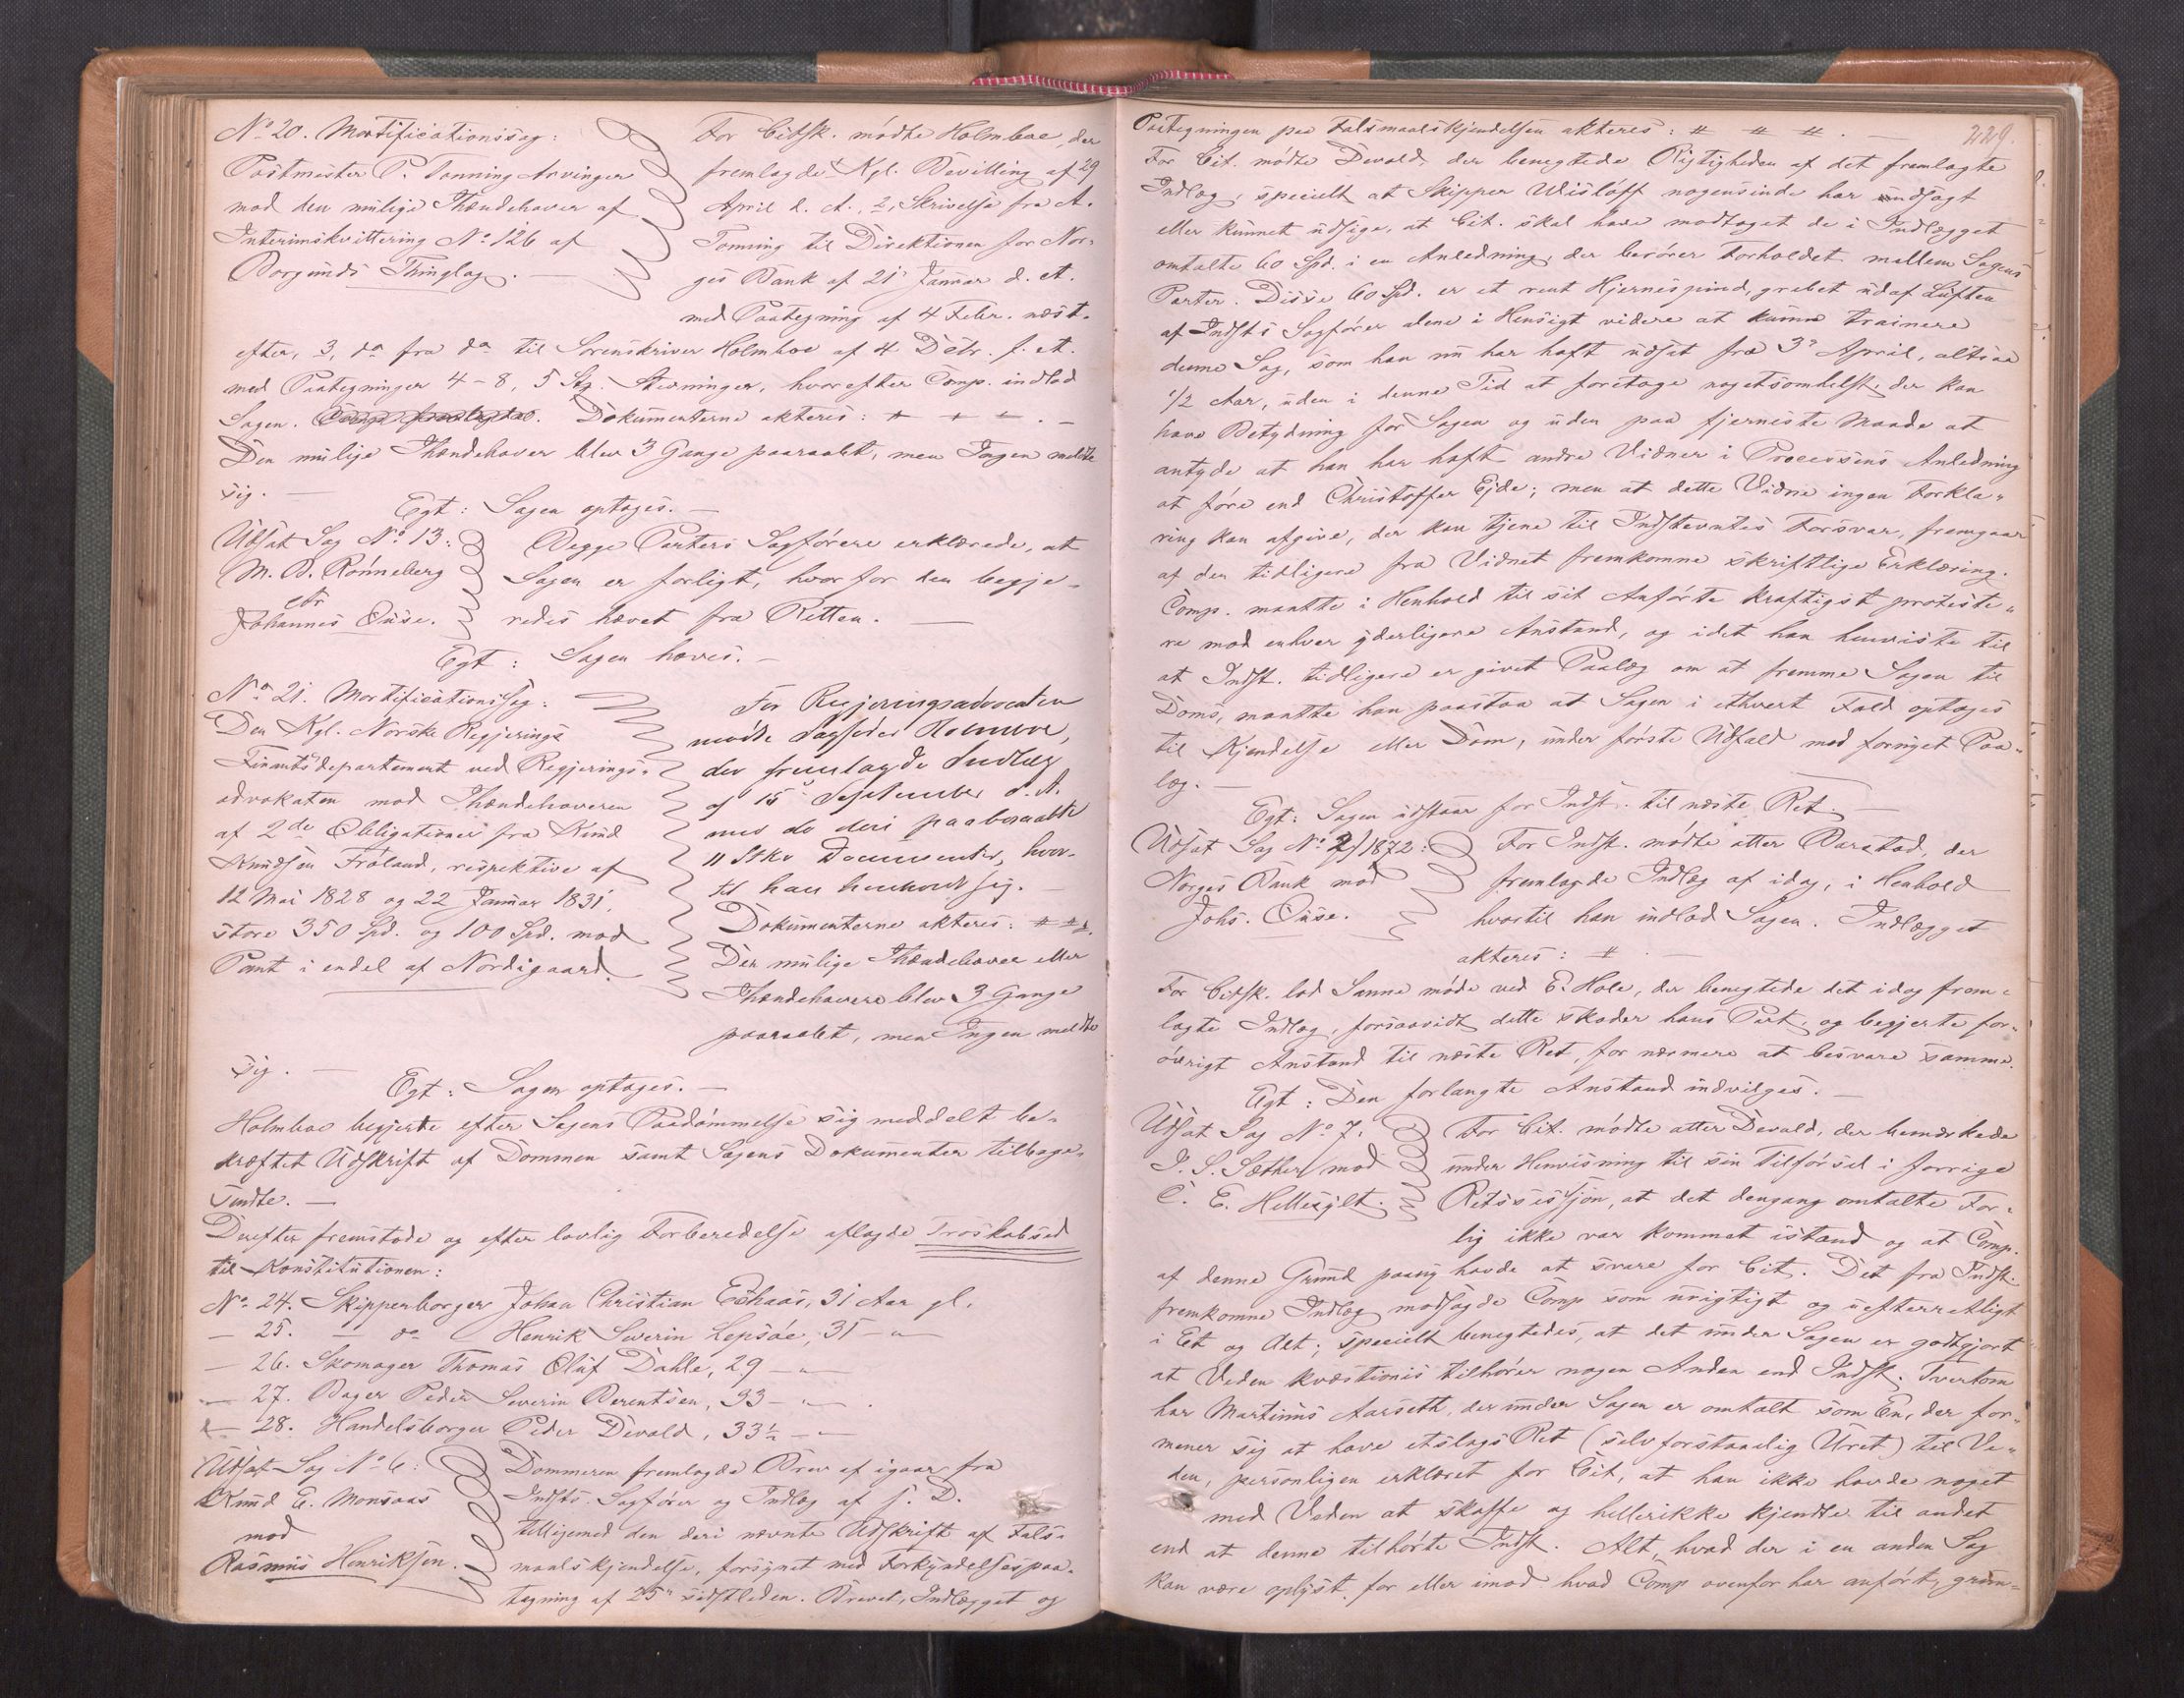 No 20. Mortificationssag:
Postmester P. Tonning Arvinger
mod den mulige Ihændehaver af
Interimskvittering No 126 af
Borgunds Thinglag. —
For Citsk. mödte Holmboe, der
fremlagde 1, Kgl. Bevilling af 29
April d. A., 2, Skrivelse fra A.
Tonning til Direktionen for Nor-
ges Bank af 21 Januar d. A.
med Paategning af 4 Febr. næst-
efter, 3, do fra do til Sorenskriver Holmboe af 4 Dcbr. f. A.
med Paategninger 4-8, 5 Stg. Stevninger, hvorefter Comp. indlod
Sagen. Dokumenterne akteres: # # # . —
Den mulige Ihændehaver blev 3 Gange paaraabt, men Ingen meldte
sig. —
Egt: Sagen optages. —
Udsat Sag No 13:
M. B. Rönneberg
ctr
Johannes Ouse.
Begge Parters Sagförere erklærede, at
Sagen er forligt, hvorfor den begje-
redes hævet fra Retten. —
Egt: Sagen hæves. —
No 21. Mortificationssag:
Den Kgl. Norske Regjerings
Finantsdepartement ved Regjerings-
advokaten mod Ihændehaveren
af 2de Obligationer fra Knud
Knudsen Fröland, respektive af
12 Mai 1828 og 22 Januar 1831,
store 350 Spd. og 100 Spd. mod
Pant i endel af Nordigaard.
For Regjeringsadvocaten
mödte Sagförer Holmboe,
der fremlagde Indlæg
af 15 September d. A.
med de deri paaberaabte
11 Stkr Documenter, hvor-
til han henholdt sig. —
Dokumenterne akteres: # # #.
Den mulige Ihændehaver eller
Ihændehavere blev 3 Gange
paaraabt, men Ingen meldte
sig. —
Egt: Sagen optages. —
Holmboe begjerte efter Sagens Paadömmelse sig meddelt be-
kræftet Udskrift af Dommen samt Sagens Dokumenter tilbage-
sendte. —
Derefter fremstode og efter lovlig Forberedelse aflagde Troskabsed
til Konstitutionen:
No 24. Skipperborger Johan Christian Eshaas, 31 Aar gl.
— 25. — do Henrik Severin Lepsöe, 35 — " —
— 26. Skomager Thomas Oluf Dahle, 29 — " —
— 27. Bager Peder Severin Berentsen, 33 — " —.
— 28. Handelsborger Peder Devold, 33½ — " —
Udsat Sag No 6:
Knud E. Monsaas
mod
Rasmus Henriksen.
Dommeren fremlagde Brev af igaar fra
Indsts. Sagförer og Indlæg af s. D.
tilligemed den deri nævnte Udskrift af Fals-
maalskjendelse, forsynet med Forkyndelsespaa-
tegning af 25 sidstleden. Brevet, Indlægget og
229.
Paategningen paa Falsmaalskjendelsen akteres: # # #. —
For Cit. mödte Devold, der benegtede Rigtigheden af det fremlagte
Indlæg, specielt at Skipper Wislöff nogensinde har udsagt
eller kunnet udsige, at Cit. skal have modtaget de i Indlægget
omtalte 60 Spd. i en Anledning, der berörer Forholdet mellem Sagens
Parter. Disse 60 Spd. er et rent Hjernespind, grebet ud af Luften
af Indsts Sagförer alene i Hensigt videre at kunne trainere
denne Sag, som han nu har haft udsat fra 3 April, altsaa
1/2 Aar, uden i denne Tid at foretage nogetsomhelst, der kan
have Betydning for Sagen og uden paa fjerneste Maade at
antyde at han har haft andre Vidner i Processens Anledning
at före end Christoffer Ejde; men at dette Vidne ingen Forkla-
ring kan afgive, der kan tjene til Indstevntes Forsvar, fremgaar
af den tidligere fra Vidnet fremkomne skriftlige Erklæring.
Comp. maatte i Henhold til sit Anförte kraftigst proteste-
re mod enhver yderligere Anstand, og idet han henviste til
at Indst. tidligere er givet Paalæg om at fremme Sagen til
Doms, maatte han paastaa at Sagen i ethvert Fald optages
til Kjendelse eller Dom, under förste Udfald med fornyet Paa-
læg. —
Egt: Sagen udstaar for Indst. til næste Ret. —
Udsat Sag No 2/1872:
Norges Bank mod
Johs. Ouse.
For Indst. mödte atter Barstad, der
fremlagde Indlæg af idag, i Henhold
hvortil han indlod Sagen. Indlægget
akteres: # . —
For Citsk. lod Sanne möde ved E. Hole, der benegtede det idag frem-
lagte Indlæg, forsaavidt dette skader hans Part, og begjerte for-
övrigt Anstand til næste Ret, for nærmere at besvare samme.
Egt: Den forlangte Anstand indvilges. —
Udsat Sag No 7.
I. S. Sæther mod
C. E. Hellesylt.
For Cit. mödte atter Devold, der bemærkede
under Henvisning til sin Tilförsel i forrige
Retssession, at det dengang omtalte For-
lig ikke var kommet istand og at Comp.
af denne Grund paany havde at svare for Cit. Det fra Indst.
fremkomne Indlæg modsagde Comp som urigtigt og uefterretligt
i Et og Alt; specielt benegtedes, at det under Sagen er godtgjort
at Veden kvæstionis tilhörer nogen Anden end Indst. Tvertom
har Martinus Aarseth, der under Sagen er omtalt som En, der for-
mener sig at have etslags Ret (selvforstaaelig Uret) til Ve-
den, personligen erklæret for Cit, at han ikke havde noget
med Veden at skaffe og hellerikke kjendte til andet
end at denne tilhörte Indst. Alt, hvad der i en anden Sag
kan være oplyst for eller imod hvad Comp ovenfor har anfört, grun-